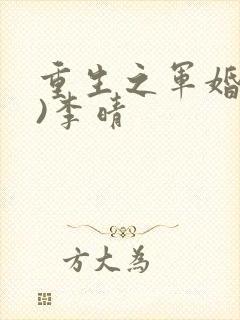 重生之军婚
)李晴
方大为